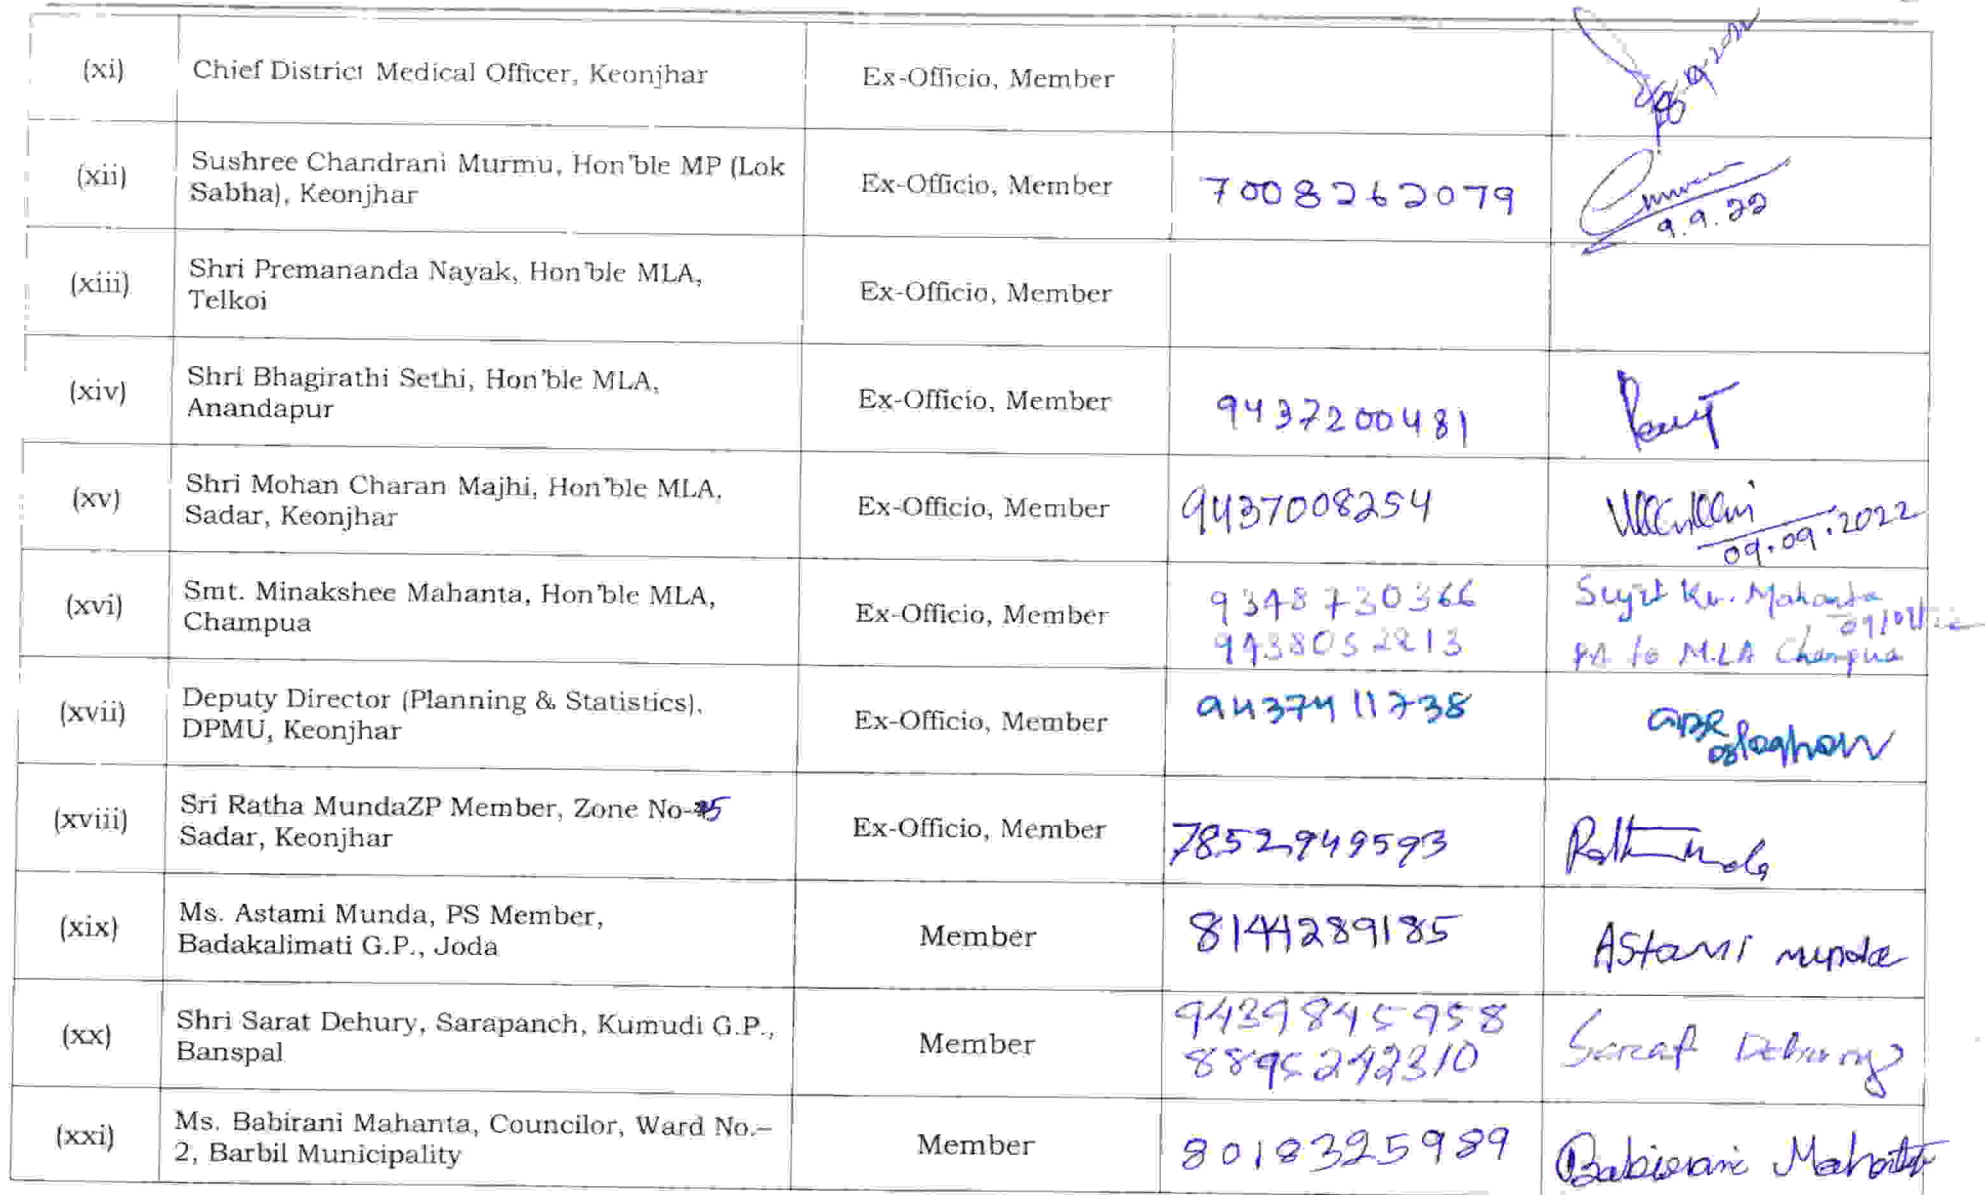 (xi) Chief District Medical Officer, Keonjhar Ex-Officio, Member
(xii) Sushree Chandrani Murmu, Hon'ble MP (Lok
Sabha), Keonjhar Ex-Officio, Member 7008262079
9.9.22
(xiii) Shri Premananda Nayak, Hon'ble MLA,
Telkoi Ex-Officio, Member
(xiv) Shri Bhagirathi Sethi, Hon'ble MLA,
Anandapur Ex-Officio, Member 9437200481
(xv) Shri Mohan Charan Majhi, Hon'ble MLA,
Sadar, Keonjhar Ex-Officio, Member 9437008254
09.09.2022
(xvi) Smt. Minakshee Mahanta, Hon'ble MLA,
Champua Ex-Officio, Member 9348730366 Sujit Ku. Mahanta
PA to M.LA Champua
(xvii) Deputy Director (Planning & Statistics),
DPMU, Keonjhar Ex-Officio, Member 9437411738
(xviii) Sri Ratha MundaZP Member, Zone No-5
Sadar, Keonjhar Ex-Officio, Member 7852949593
(xix) Ms. Astami Munda, PS Member,
Badakalimati G.P., Joda Member 8144289185 Astami munda
(xx) Shri Sarat Dehury, Sarapanch, Kumudi G.P.,
Banspal Member 9439845958
8895242310 Sarat Dehury
(xxi) Ms. Babirani Mahanta, Councilor, Ward No.–
2, Barbil Municipality Member 8018325989 Babirani Mahanta